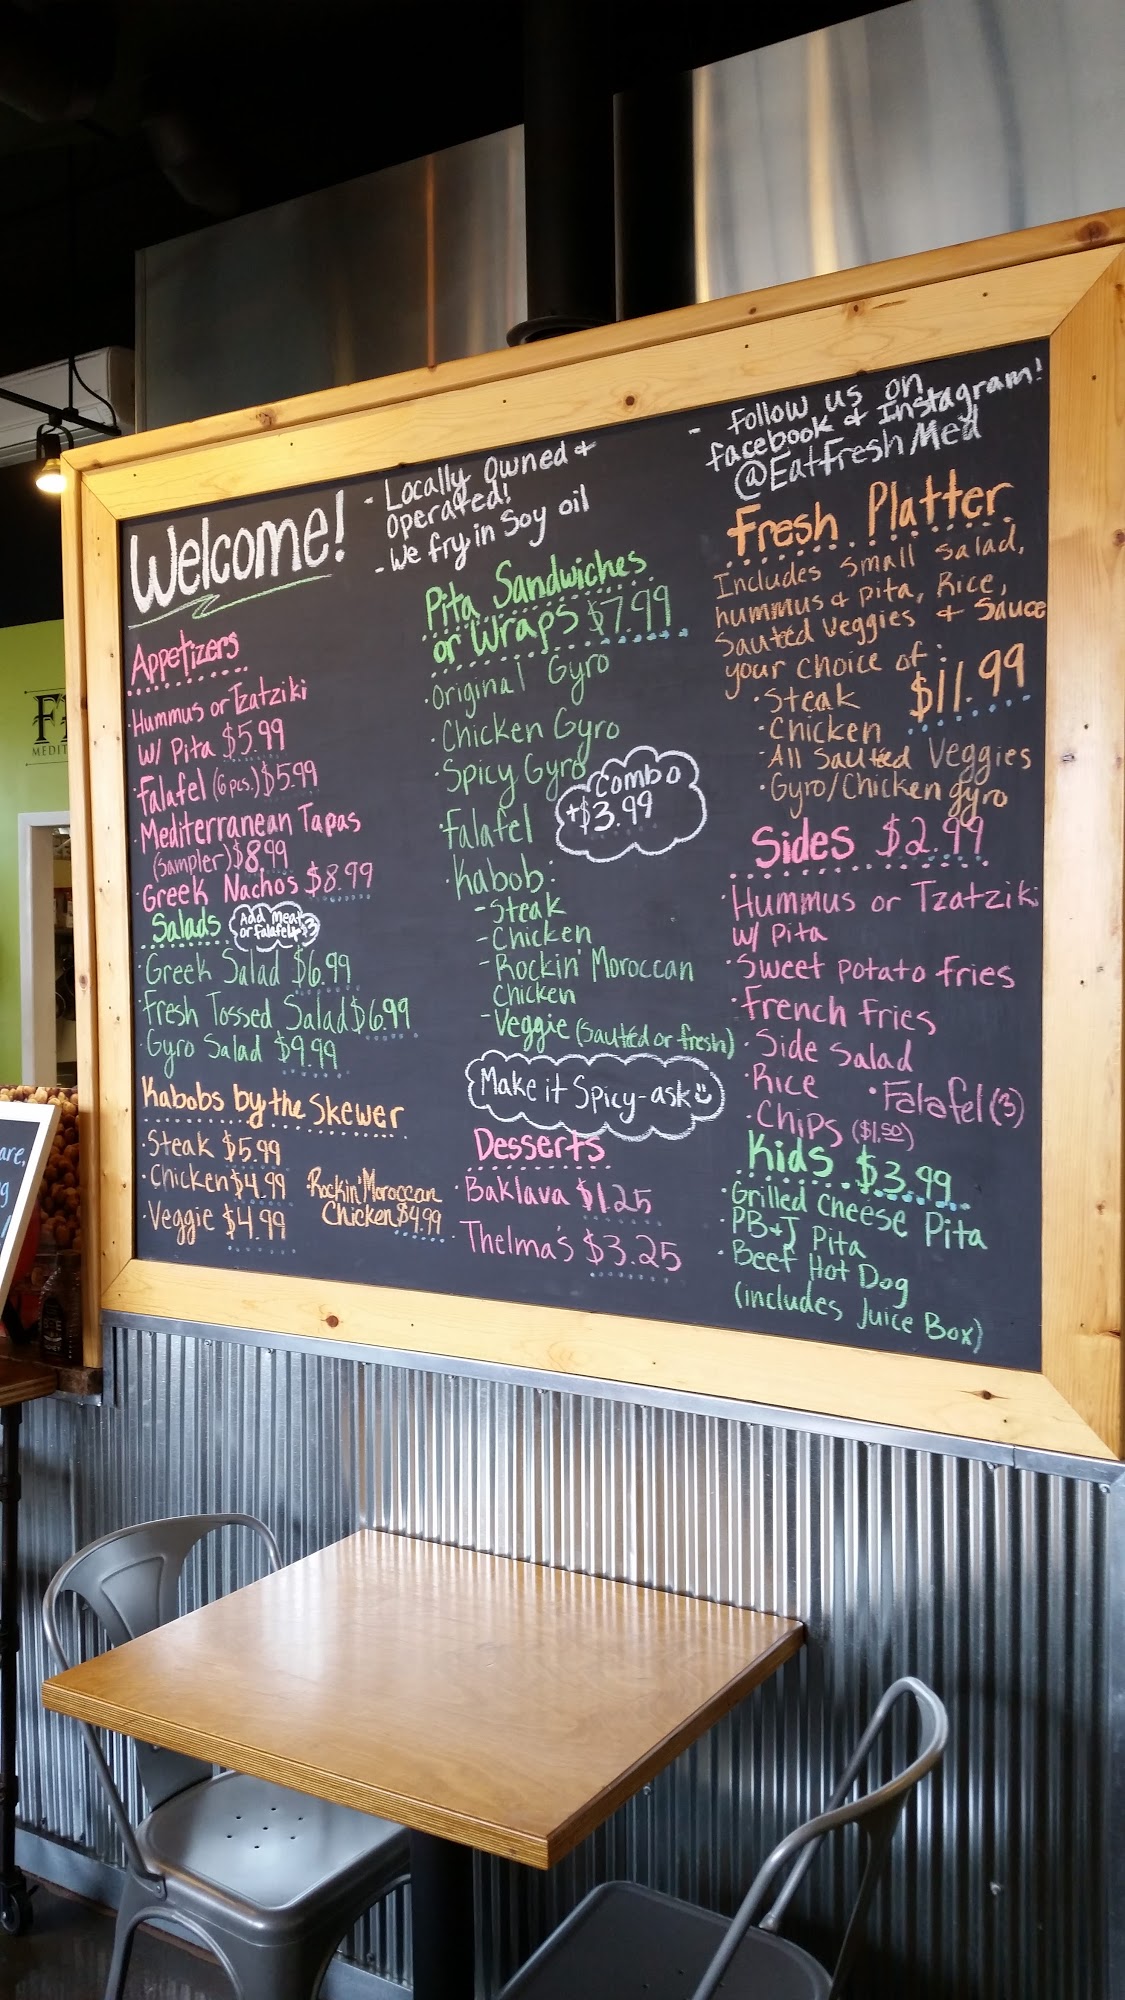 Welcome!
- Locally Owned +
Operated!
- We fry in Soy oil
- Follow us on
facebook & Instagram!
@EatFreshMed
Appetizers
·Hummus or Tzatziki
W/ Pita $5.99
·Falafel (6pcs.) $5.99
·Mediterranean Tapas
(Sampler) $8.99
·Greek Nachos $8.99
Salads
Add Meat
or Falafel+$3
·Greek Salad $6.99
·Fresh Tossed Salad $6.99
·Gyro Salad $9.99
Kabobs by the Skewer
·Steak $5.99
·Chicken $4.99
·Veggie $4.99
·Rockin' Moroccan
Chicken $4.99
Pita Sandwiches
or Wraps $7.99
·Original Gyro
·Chicken Gyro
·Spicy Gyro
·Falafel
·Kabob:
-Steak
-Chicken
-Rockin' Moroccan
Chicken
-Veggie (Sautéed or fresh)
Combo
+$3.99
Make it Spicy-ask
Desserts
·Baklava $1.25
·Thelma's $3.25
Fresh Platter
Includes small salad,
hummus & pita, Rice,
Sautéed Veggies & Sauce
your choice of:
$11.99
·Steak
·Chicken
·All Sautéed Veggies
·Gyro/Chicken gyro
Sides $2.99
·Hummus or Tzatziki
W/ Pita
·Sweet potato fries
·French Fries
·Side Salad
·Rice
·Falafel (3)
·Chips ($1.50)
Kids $3.99
·Grilled Cheese Pita
·PB+J Pita
·Beef Hot Dog
(includes Juice Box)